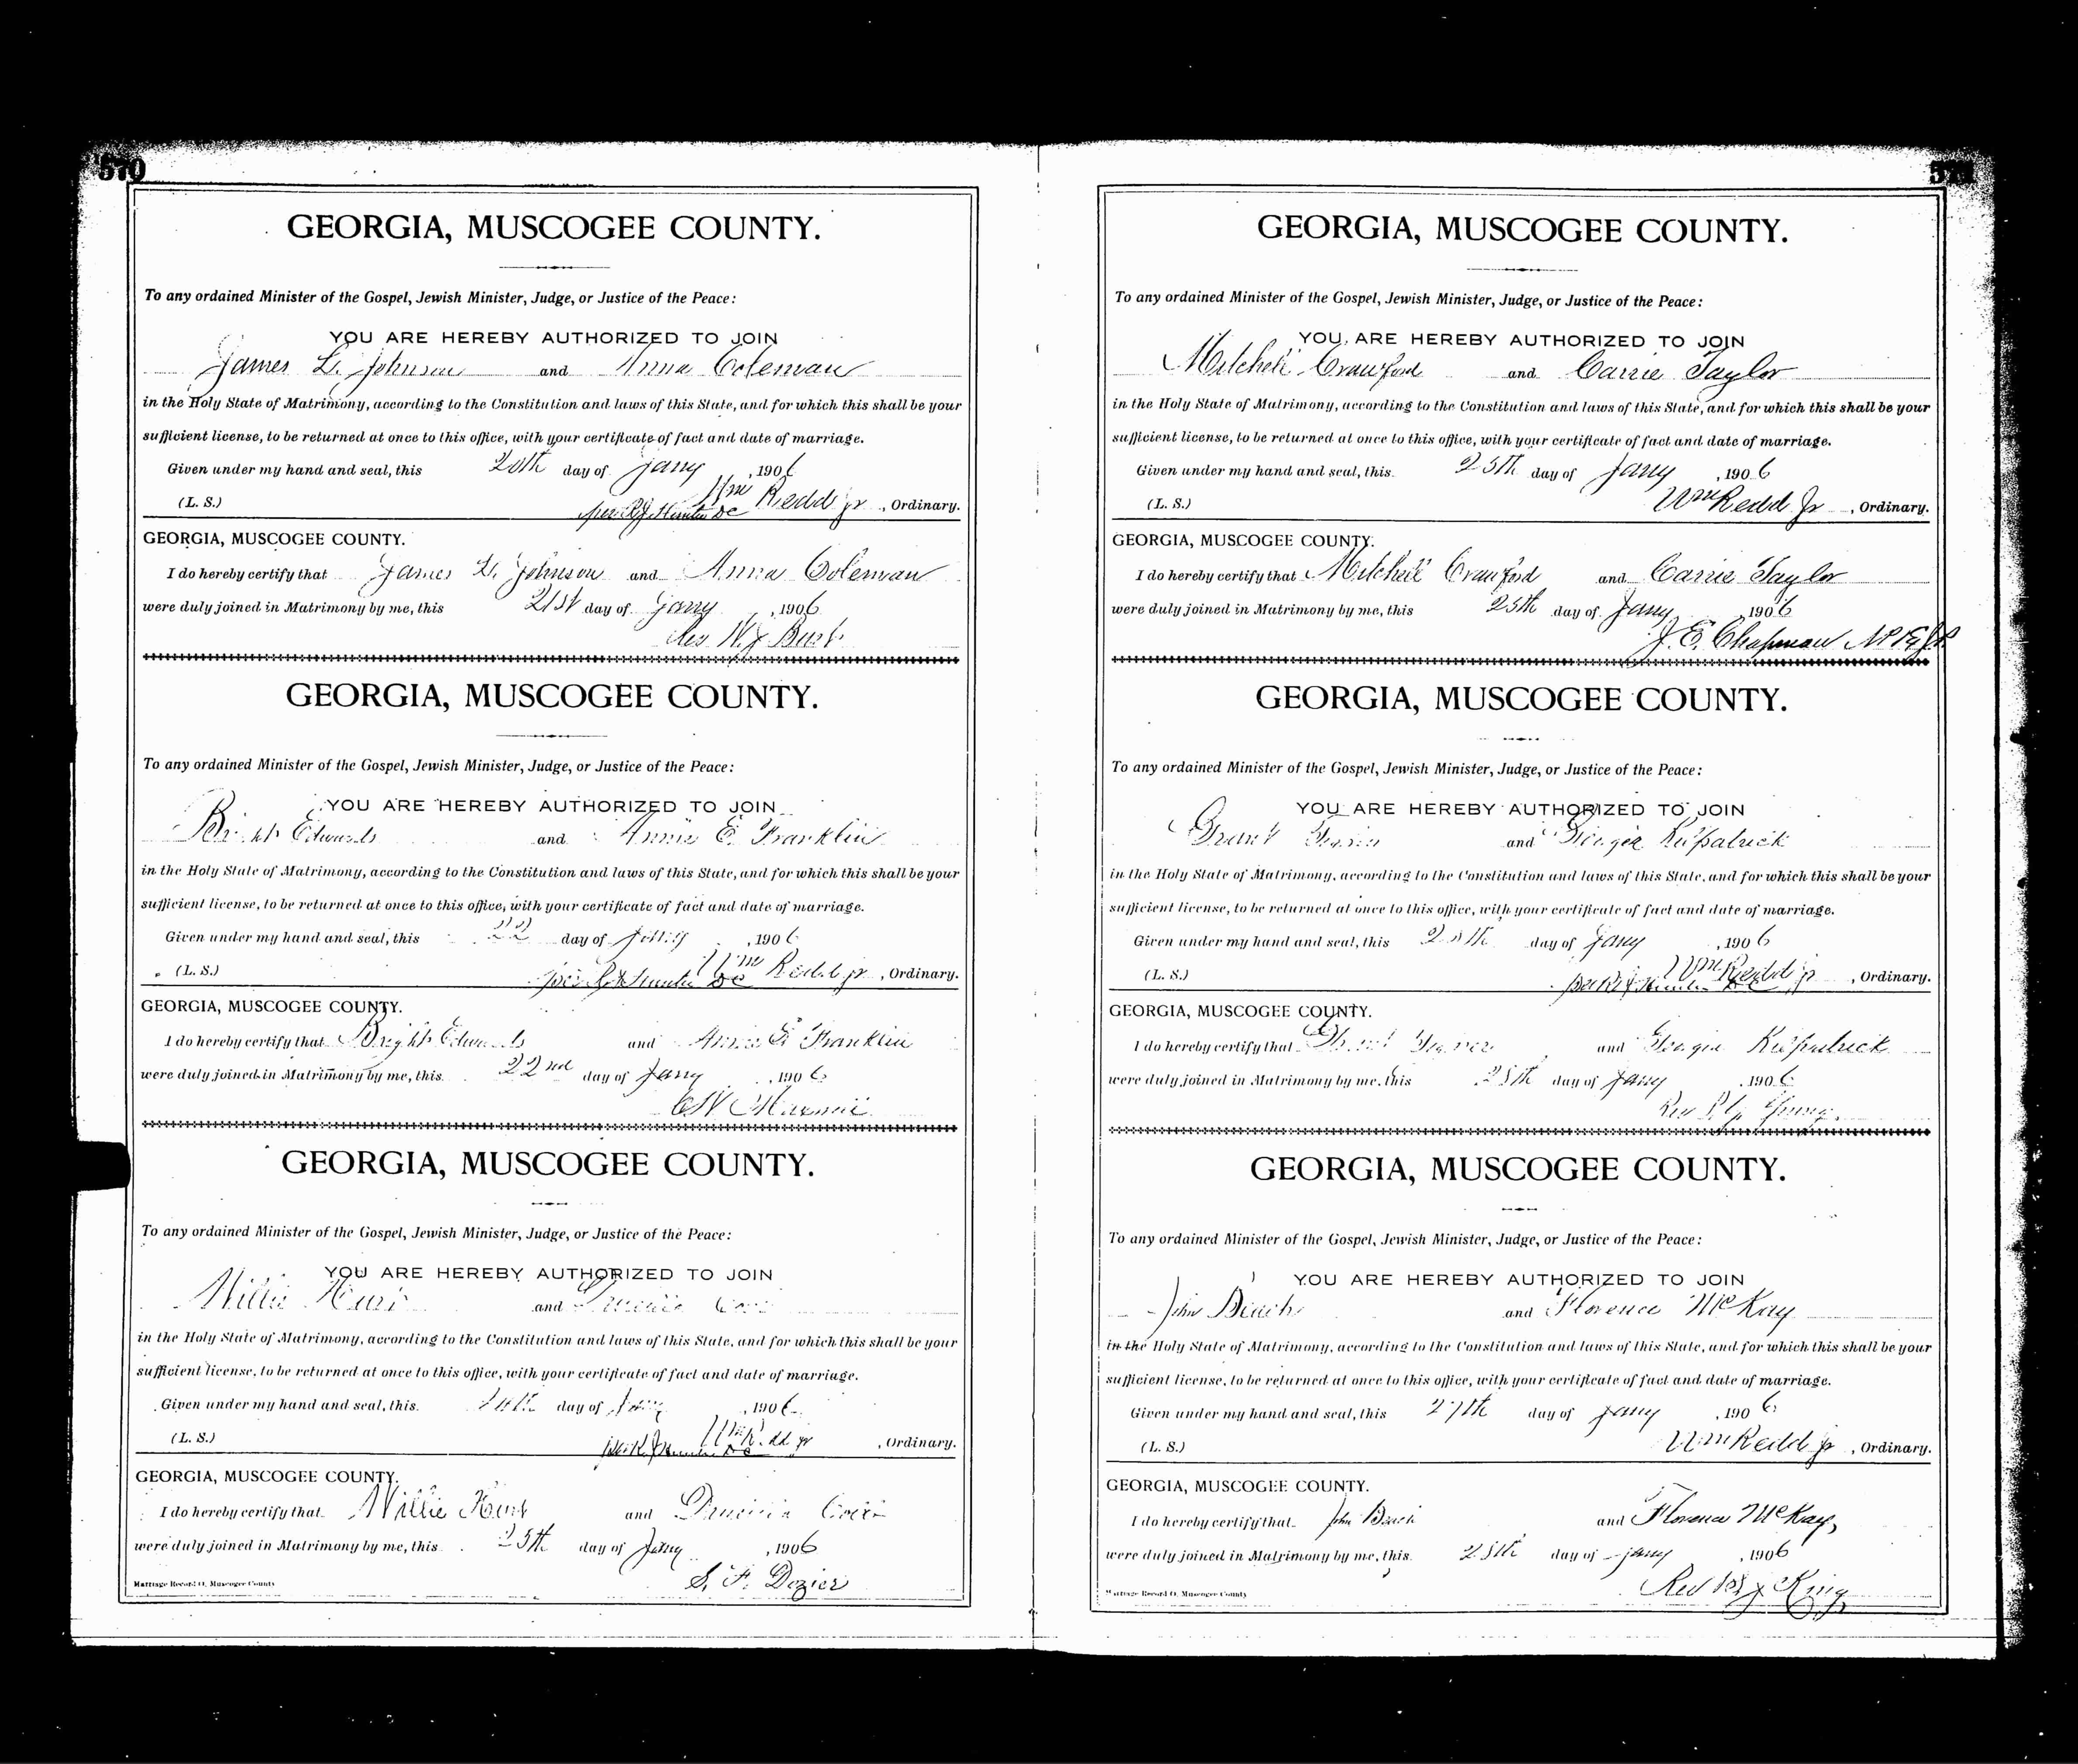 570
GEORGIA, MUSCOGEE COUNTY.
To any ordained Minister of the Gospel, Jewish Minister, Judge, or Justice of the Peace:
YOU ARE HEREBY AUTHORIZED TO JOIN
James L. Johnson and Anna Coleman
in the Holy State of Matrimony, according to the Constitution and laws of this State, and for which this shall be your
sufficient license, to be returned at once to this office, with your certificate of fact and date of marriage.
Given under my hand and seal, this 20th day of Jany, 1906
(L. S.) Wm Redd Jr, Ordinary.
GEORGIA, MUSCOGEE COUNTY.
I do hereby certify that James L. Johnson and Anna Coleman
were duly joined in Matrimony by me, this 21st day of Jany, 1906
GEORGIA, MUSCOGEE COUNTY.
To any ordained Minister of the Gospel, Jewish Minister, Judge, or Justice of the Peace:
YOU ARE HEREBY AUTHORIZED TO JOIN
Bright Edwards and Annie E. Franklin
in the Holy State of Matrimony, according to the Constitution and laws of this State, and for which this shall be your
sufficient license, to be returned at once to this office, with your certificate of fact and date of marriage.
Given under my hand and seal, this 22 day of Jany, 1906
(L. S.) Wm Redd Jr, Ordinary.
GEORGIA, MUSCOGEE COUNTY.
I do hereby certify that Bright Edwards and Annie E. Franklin
were duly joined in Matrimony by me, this 22nd day of Jany, 1906
GEORGIA, MUSCOGEE COUNTY.
To any ordained Minister of the Gospel, Jewish Minister, Judge, or Justice of the Peace:
YOU ARE HEREBY AUTHORIZED TO JOIN
Willie and
in the Holy State of Matrimony, according to the Constitution and laws of this State, and for which this shall be your
sufficient license, to be returned at once to this office, with your certificate of fact and date of marriage.
Given under my hand and seal, this day of Jany, 1906
(L. S.) Wm Redd Jr, Ordinary.
GEORGIA, MUSCOGEE COUNTY.
I do hereby certify that Willie and
were duly joined in Matrimony by me, this 25th day of Jany, 1906
S. F. Dozier
Marriage Record O, Muscogee County
571
GEORGIA, MUSCOGEE COUNTY.
To any ordained Minister of the Gospel, Jewish Minister, Judge, or Justice of the Peace:
YOU ARE HEREBY AUTHORIZED TO JOIN
Mitchell Crawford and Carrie Taylor
in the Holy State of Matrimony, according to the Constitution and laws of this State, and for which this shall be your
sufficient license, to be returned at once to this office, with your certificate of fact and date of marriage.
Given under my hand and seal, this 25th day of Jany, 1906
(L. S.) Wm Redd Jr, Ordinary.
GEORGIA, MUSCOGEE COUNTY.
I do hereby certify that Mitchell Crawford and Carrie Taylor
were duly joined in Matrimony by me, this 25th day of Jany, 1906
J. E. Chapman
GEORGIA, MUSCOGEE COUNTY.
To any ordained Minister of the Gospel, Jewish Minister, Judge, or Justice of the Peace:
YOU ARE HEREBY AUTHORIZED TO JOIN
Grant and Georgia Kilpatrick
in the Holy State of Matrimony, according to the Constitution and laws of this State, and for which this shall be your
sufficient license, to be returned at once to this office, with your certificate of fact and date of marriage.
Given under my hand and seal, this day of Jany, 1906
(L. S.) Wm Redd Jr, Ordinary.
GEORGIA, MUSCOGEE COUNTY.
I do hereby certify that Grant and Georgia Kilpatrick
were duly joined in Matrimony by me, this day of Jany, 1906
Rev Young
GEORGIA, MUSCOGEE COUNTY.
To any ordained Minister of the Gospel, Jewish Minister, Judge, or Justice of the Peace:
YOU ARE HEREBY AUTHORIZED TO JOIN
John Beach and Florence McKay
in the Holy State of Matrimony, according to the Constitution and laws of this State, and for which this shall be your
sufficient license, to be returned at once to this office, with your certificate of fact and date of marriage.
Given under my hand and seal, this 27th day of Jany, 1906
(L. S.) Wm Redd Jr, Ordinary.
GEORGIA, MUSCOGEE COUNTY.
I do hereby certify that John Beach and Florence McKay,
were duly joined in Matrimony by me, this 28th day of Jany, 1906
Rev King
Marriage Record O, Muscogee County